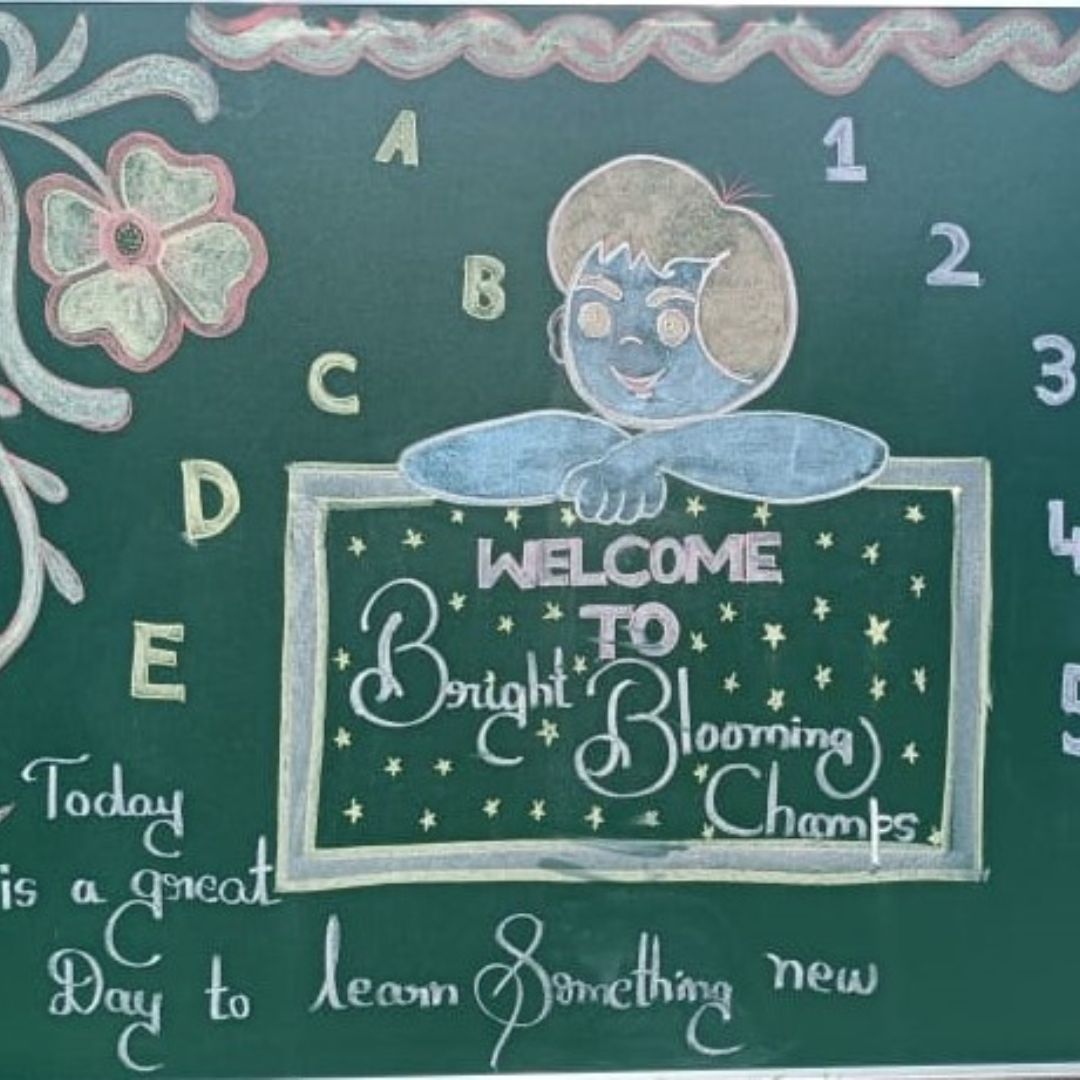 A
B
C
D
E
1
2
3
4
5
WELCOME
TO
Bright Blooming
Champs
Today
is a great
Day to learn Something new